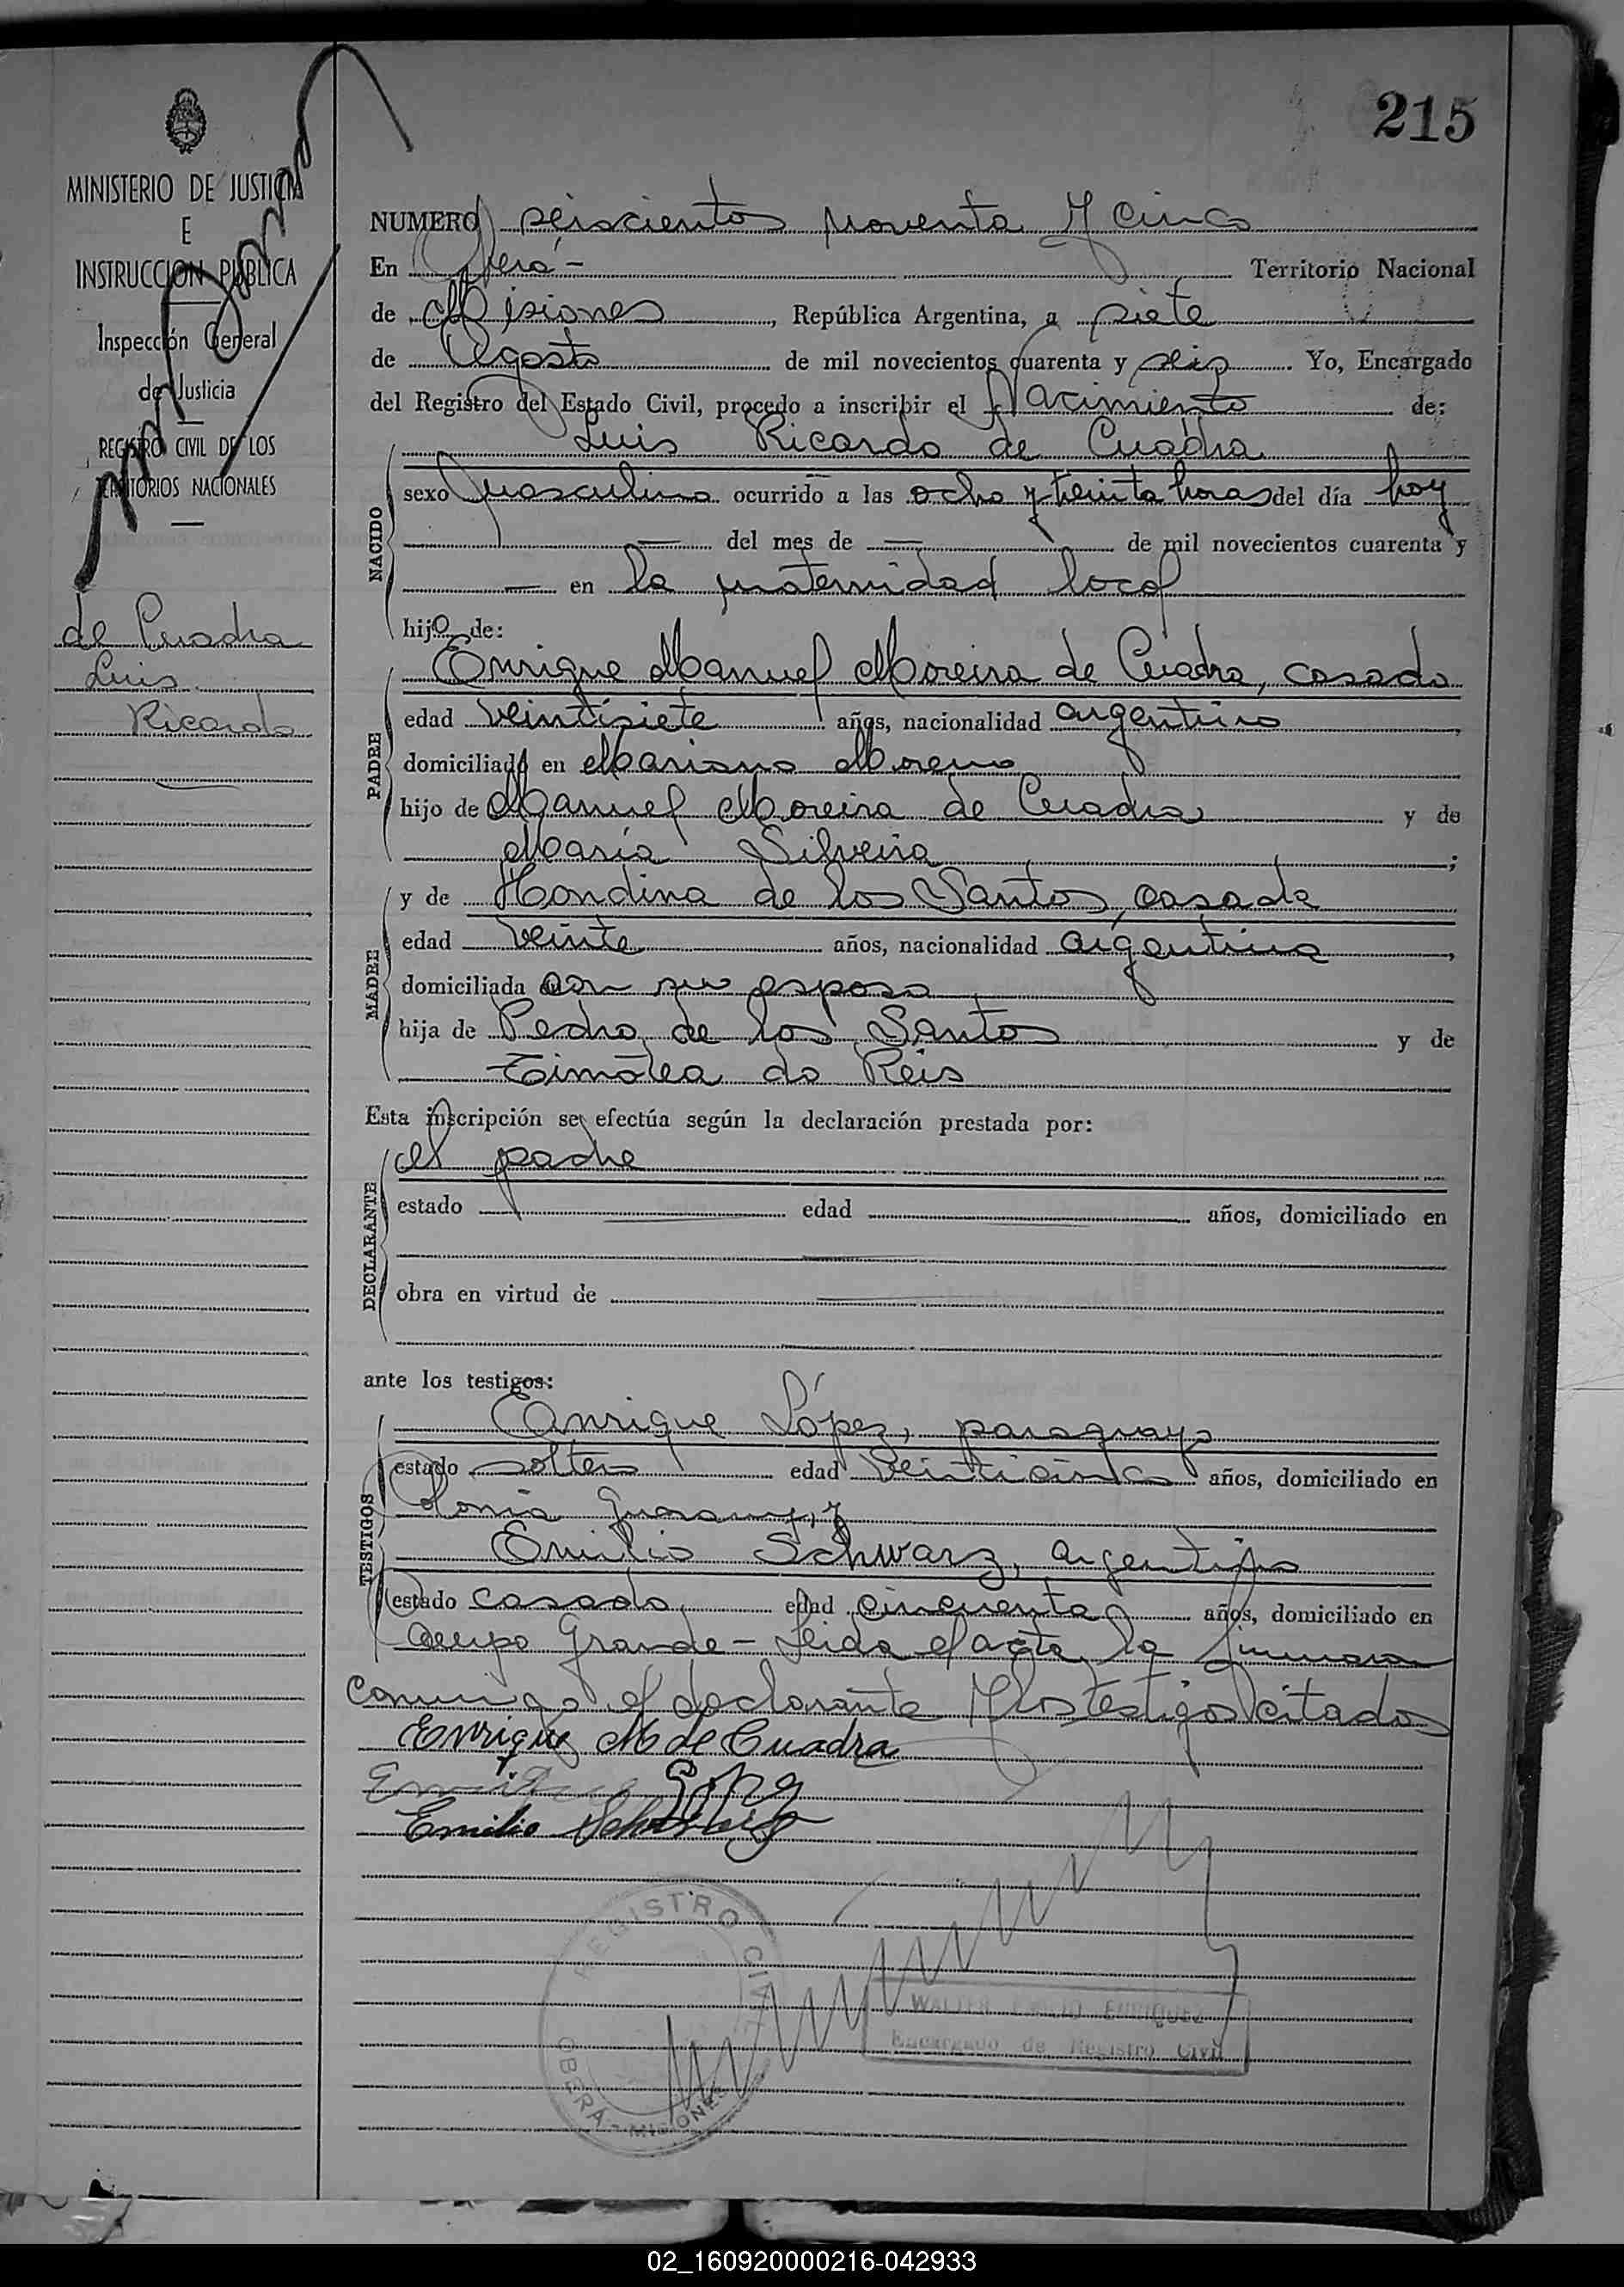 215
MINISTERIO DE JUSTICIA
E
INSTRUCCION PUBLICA
Inspección General
de Justicia
REGISTRO CIVIL DE LOS
TERRITORIOS NACIONALES
de Cuadra
Luis
Ricardo
NUMERO seiscientos noventa y cinco
En Oberá - Territorio Nacional
de Misiones, República Argentina, a siete
de Agosto de mil novecientos cuarenta y seis. Yo, Encargado
del Registro del Estado Civil, procedo a inscribir el Nacimiento de:
Luis Ricardo de Cuadra
NACIDO
sexo masculino ocurrido a las ocho y treinta horas del día hoy
— del mes de — de mil novecientos cuarenta y
— en la maternidad local
hijo de:
PADRE
Enrique Manuel Moreira de Cuadra, casado
edad veintisiete años, nacionalidad argentino
domiciliado en Mariano Moreno
hijo de Manuel Moreira de Cuadra y de
María Silveira;
MADRE
y de Hondina de los Santos, casada
edad veinte años, nacionalidad argentina,
domiciliada con su esposo
hija de Pedro de los Santos y de
Timótea do Reis
Esta inscripción se efectúa según la declaración prestada por:
DECLARANTE
el padre
estado — edad — años, domiciliado en
—
obra en virtud de —
ante los testigos:
TESTIGOS
Enrique López, paraguayo
estado soltero edad veinticinco años, domiciliado en
Colonia Guarany, y
Emilio Schwarz, argentino
estado casado, edad cincuenta años, domiciliado en
Campo Grande - Leida el acta la firmaron
conmigo el declarante y los testigos citados
Enrique M de Cuadra
Enrique López
Emilio Schwarz
REGISTRO CIVIL
OBERÁ - MISIONES
WALTER EMILIO ENRIQUEZ
Encargado de Registro Civil
02_160920000216-042933